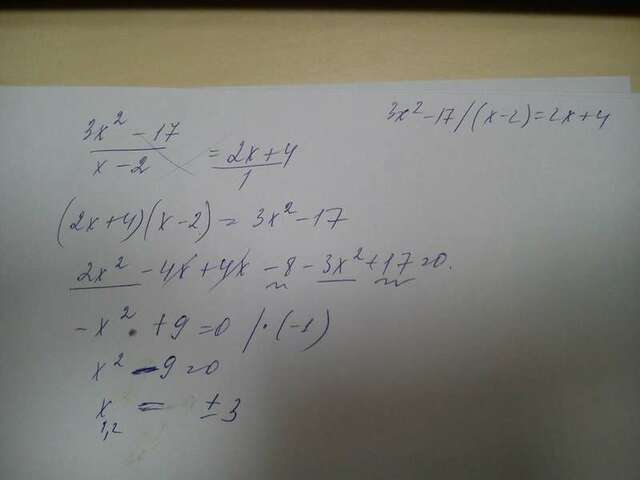 3x² - 17 / (x - 2) = 2x + 4
3x² - 17
x - 2
= 2x + 4
1
(2x + 4)(x - 2) = 3x² - 17
2x² - 4x + 4x - 8 - 3x² + 17 = 0.
- x² + 9 = 0 / · (-1)
x² - 9 = 0
x₁,₂ = ± 3